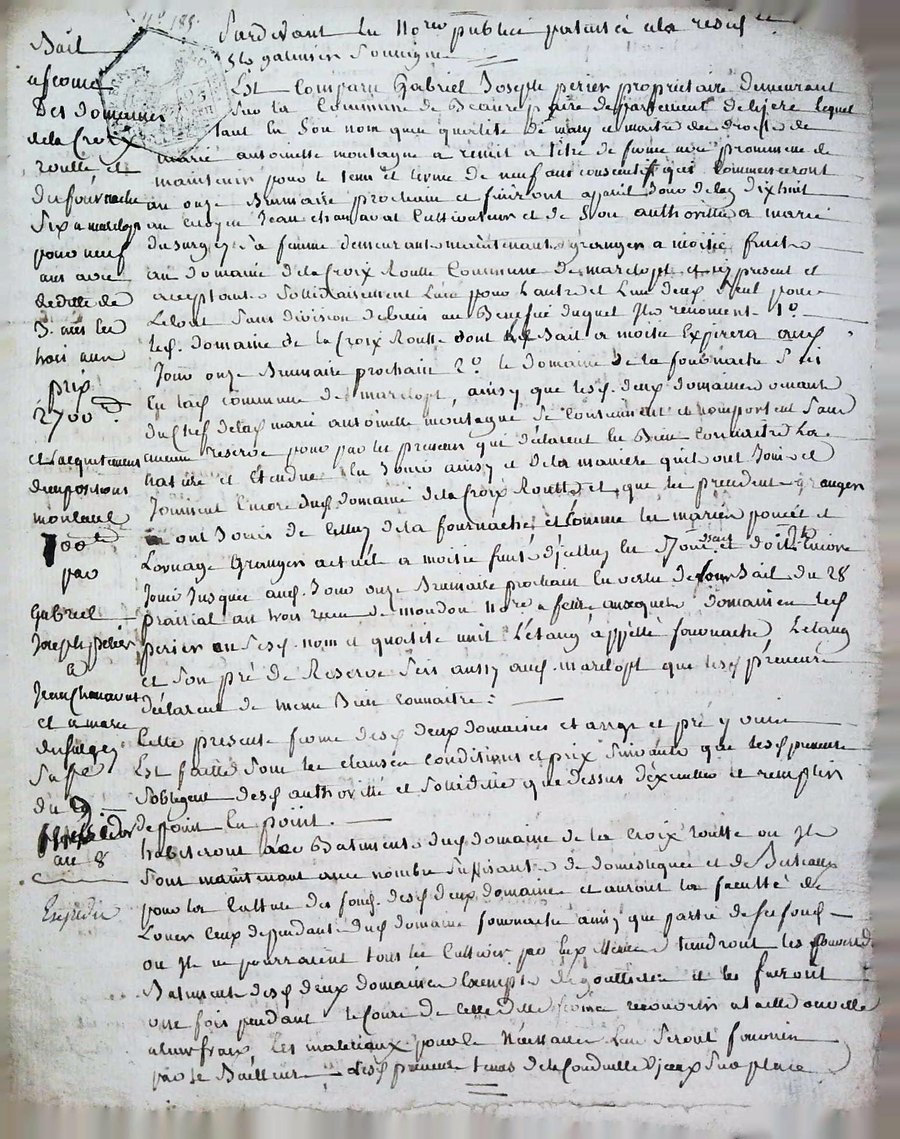 N° 188.
Bail
a ferme
Des domaines
de la Croix
roulle et
du fournache
Six a marclopt
pour neuf
ans avec
deditte de
3. ans les
trois ans
prix
2700
et l'acquittement
d'impositions
montant
700
par
Gabriel
Joseph perier
a
Jean Chanavat
et a marie
du
Sa fe
du 9
Messidor
an 8
Expedié
Pardevant Le No.re public patenté a la resid.ce
St galmier Soussigné
Est Comparu Gabriel Joseph perier propriétaire demeurant
Sur la Commune de Beaurepaire departement de lizere lequel
tant en Son nom qu'en qualité De mary et maitre des droits de
marie antoinette montagne a remit a titre de ferme avec promesse de
maintenir pour le tems et terme de neuf ans consecutifs qui Commenceront
au onze Brumaire prochain et finiront a pareil Jour de l'an dixhuit
au citoyen Jean chanavat Cultivateur et de Son authorité a marie
Sa femme demeurants maintenant grangers a moitié fruits
au domaine de la Croix Roulle Commune de marclopt, et cy present et
acceptants Sollidairement L'un pour L'autre et L'un deux Seul pour
Le tout Sans division de biens au Benefice duquel Ils renoncent 1°
led. domaine de la Croix Roulle dont le Bail a moitié Expirera aud.
Jour onze Brumaire prochain 2° le domaine de la fournache Situé
en lad commune de marclopt, ainsy que lesd. deux domaines venants
du Chef de lad marie antoinette montagne Se Consistent et Comportent Sans
aucune reserve pour par les preneurs qui declarent les Bien Connaitre La
nature et L'etendue En Jouir ainsy et de la maniere qu'ils ont Joui et
Jouissent Encore dud. domaine de la Croix Roulle et que les precedents grangers
ont Jouis de celluy de la fournache, et Comme les mariés poncet et
Lornage Grangers actuels a moitié fruits d'jcelluy En Jouissent et doivent Encore
Jouir Jusques aud. Jour onze Brumaire prochain En vertu de leur Bail du 28
prairial an trois reçu de moudon No.re a feurs auxquels domaines led
perier en Sesd. nom et qualité unit L'etang appellé fournache, L'etang
et Son pré de Reserve Sis aussy aud. marclopt que lesd preneurs
declarent de meme Bien Connaitre :
Cette presente ferme desd. deux domaines etang et pré y unis
Est faitte Sous les clauses conditions et prix Suivants que lesd preneurs
S'obligent desd authorité et Sollidité que dessus d'executer et remplir
de point En point.
habiteront les Batiments dud. domaine de la Croix roulle ou Ils
Sont maintenant avec nombre Suffisant de domestiques et de Bestiaux
pour la Culture des fonds desd deux domaines et auront la faculté de
Louer ceux dependants dud. domaine fournache ainsy que partie de ses fonds
ou Ils ne pourraient tous les Cultiver par Eux Memes tiendront les Couverts des
Batiments desd deux domaines Exempts de gouttieres et les feront
une fois pendant le Cours de Cette ditte ferme recouvrir a taille ouverte
a leur fraix les materiaux pour le Necessaire Leur Seront fournis
par le Bailleur lesd preneurs tenus de la Conduitte d'jceux Sur place